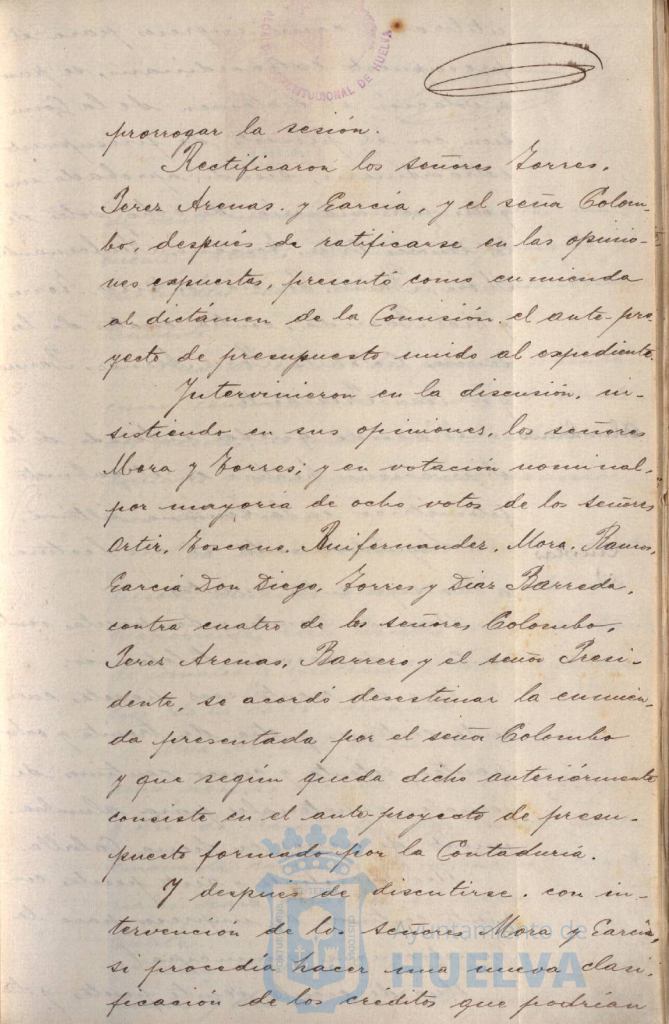 CONSTITUCIONAL DE HUELVA
prorrogar la sesión.
Rectificaron los señores Torres,
Perez Arenas y García, y el señor Colom-
bo, después de ratificarse en las opinio-
nes expuestas, presentó como enmienda
al dictámen de la Comisión el ante-pro-
yecto de presupuesto unido al expediente.
Intervinieron en la discusión, in-
sistiendo en sus opiniones, los señores
Mora y Torres; y en votación nominal,
por mayoría de ocho votos de los señores
Ortiz, Toscano, Ruifernandez, Mora, Ramos,
García Don Diego, Torres y Diaz Barreda,
contra cuatro de los señores Colombo,
Perez Arenas, Barrero y el señor Presi-
dente, se acordó desestimar la enmien-
da presentada por el señor Colombo
y que según queda dicho anteriórmente
consiste en el ante-proyecto de presu-
puesto formado por la Contaduría.
Y después de discutirse, con in-
tervención de los señores Mora y García,
si procedía hacer una nueva clasi-
ficación de los créditos que podrían
Ayuntamiento de
HUELVA